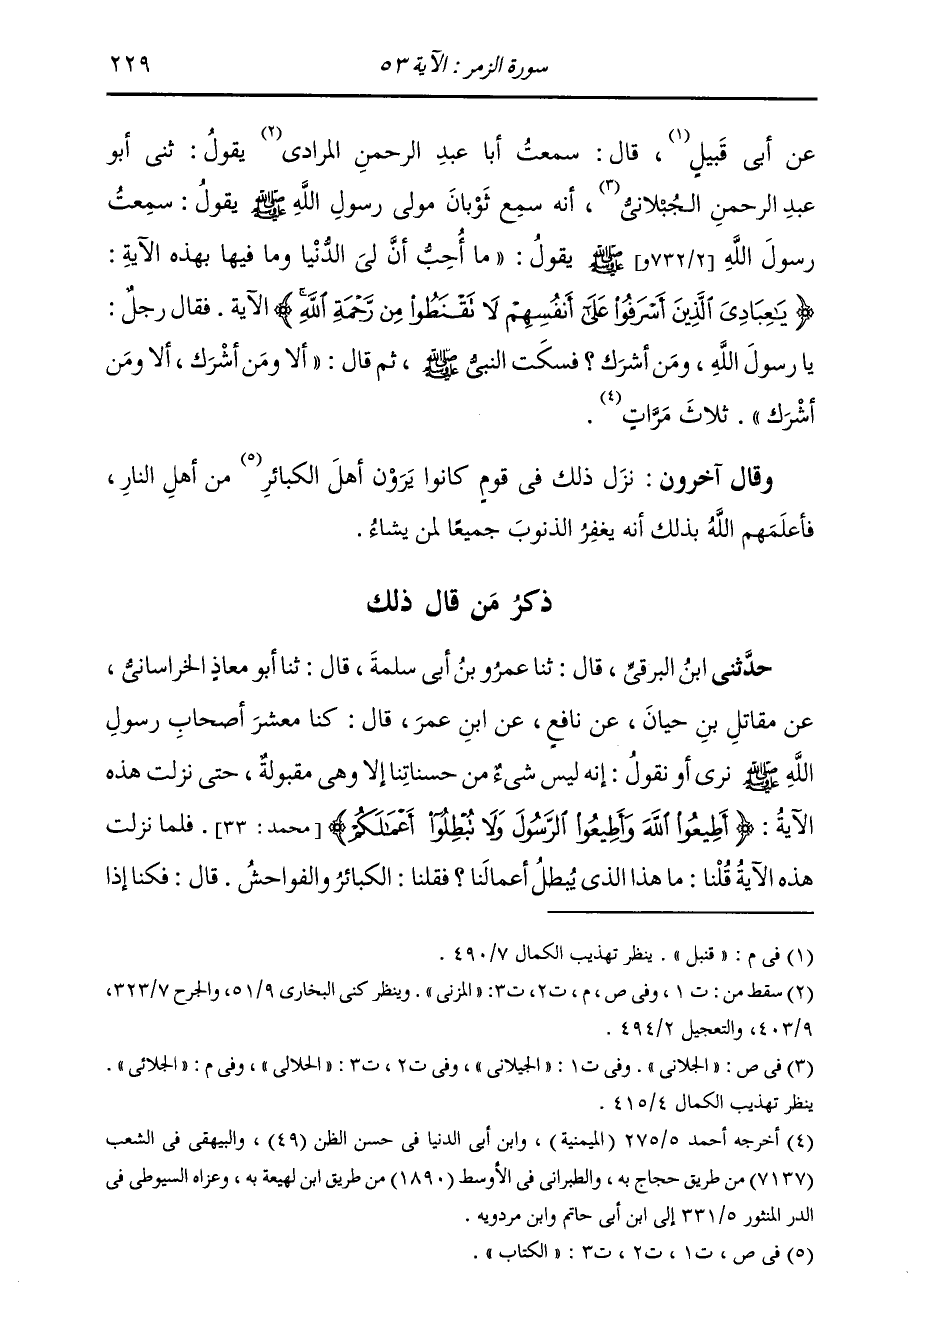 سورة الزمر : الآية ٥٣ ٢٢٩
عن أبى قَبيلٍ(١) ، قال : سمعتُ أبا عبدِ الرحمنِ المرادى(٢) يقولُ : ثنى أبو
عبدِ الرحمنِ الجُبْلانىُّ(٣) ، أنه سمِع ثَوْبانَ مولى رسولِ اللَّهِ ﷺ يقولُ : سمِعتُ
رسولَ اللَّهِ [٧٣٢/٢و] ﷺ يقولُ : « ما أُحِبُّ أنَّ لىَ الدُّنْيا وما فيها بهذه الآيةِ :
﴿ يَٰعِبَادِىَ ٱلَّذِينَ أَسْرَفُوا۟ عَلَىٰٓ أَنفُسِهِمْ لَا تَقْنَطُوا۟ مِن رَّحْمَةِ ٱللَّهِۚ﴾ الآية . فقال رجلٌ :
يا رسولَ اللَّهِ ، ومَن أشرَك ؟ فسكَت النبىُّ ﷺ ، ثم قال : « ألا ومَن أشْرَك ، ألا ومَن
أشْرَك » . ثلاثَ مَرَّاتٍ(٤) .
وقال آخرون : نزَل ذلك فى قومٍ كانوا يَرَوْن أهلَ الكبائرِ(٥) من أهلِ النارِ ،
فأعلَمَهم اللَّهُ بذلك أنه يغفِرُ الذنوبَ جميعًا لمن يشاءُ .
ذكرُ مَن قال ذلك
حدَّثنى ابنُ البرقىِّ ، قال : ثنا عمرُو بنُ أبى سلمةَ ، قال : ثنا أبو معاذٍ الخراسانىُّ ،
عن مقاتلِ بنِ حيانَ ، عن نافعٍ ، عن ابنِ عمرَ ، قال : كنا معشرَ أصحابِ رسولِ
اللَّهِ ﷺ نرى أو نقولُ : إنه ليس شىءٌ من حسناتِنا إلا وهى مقبولةٌ ، حتى نزلت هذه
الآيةُ : ﴿ أَطِيعُوا۟ ٱللَّهَ وَأَطِيعُوا۟ ٱلرَّسُولَ وَلَا تُبْطِلُوٓا۟ أَعْمَٰلَكُمْ﴾ [محمد : ٣٣] . فلما نزلت
هذه الآيةُ قُلْنا : ما هذا الذى يُبطلُ أعمالَنا ؟ فقلنا : الكبائرُ والفواحشُ . قال : فكنا إذا
(١) فى م : « قنبل » . ينظر تهذيب الكمال ٤٩٠/٧ .
(٢) سقط من : ت ١ ، وفى ص ، م ، ت٢، ت٣: « المزنى » . وينظر كنى البخارى ٥١/٩، والجرح ٣٢٣/٧،
٤٠٣/٩، والتعجيل ٤٩٤/٢ .
(٣) فى ص : « الجلانى » . وفى ت١ : « الجيلانى » ، وفى ت٢ ، ت٣ : « الحلالى » ، وفى م : « الجلائى » .
ينظر تهذيب الكمال ٤١٥/٤ .
(٤) أخرجه أحمد ٢٧٥/٥ (الميمنية) ، وابن أبى الدنيا فى حسن الظن (٤٩) ، والبيهقى فى الشعب
(٧١٣٧) من طريق حجاج به ، والطبرانى فى الأوسط (١٨٩٠) من طريق ابن لهيعة به ، وعزاه السيوطى فى
الدر المنثور ٣٣١/٥ إلى ابن أبى حاتم وابن مردويه .
(٥) فى ص ، ت١ ، ت٢ ، ت٣ : « الكتاب » .